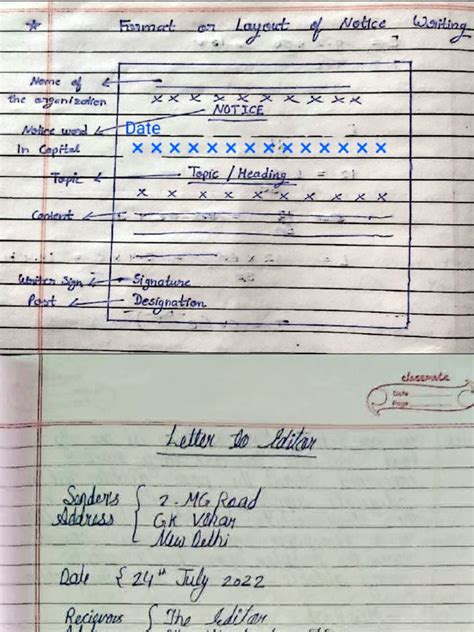 * Format or Layout of Notice Writing
Name of
the organization
x x x x x x x x x x
NOTICE
Notice word
In Capital
Date
x x x x x x x x x x x x x x
Topic
Topic / Heading
x x x x x x x x x
Content
Writer Sign
Signature
Post
Designation
classmate
Date
Page
Letter to Editor
Sender's
Address
2 - MG Road
GK Vihar
New Delhi
Date { 24th July 2022
Recievers { The Editor